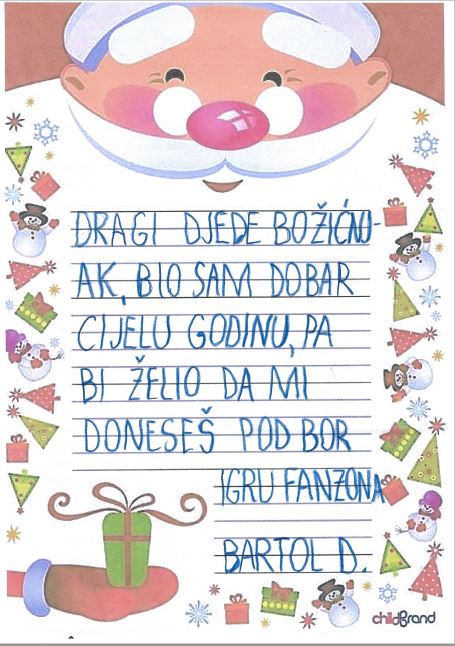 DRAGI DJEDE BOŽIĆNJ-
AK, BIO SAM DOBAR
CIJELU GODINU, PA
BI ŽELIO DA MI
DONESEŠ POD BOR
IGRU FANZONA
BARTOL D.
childBrand